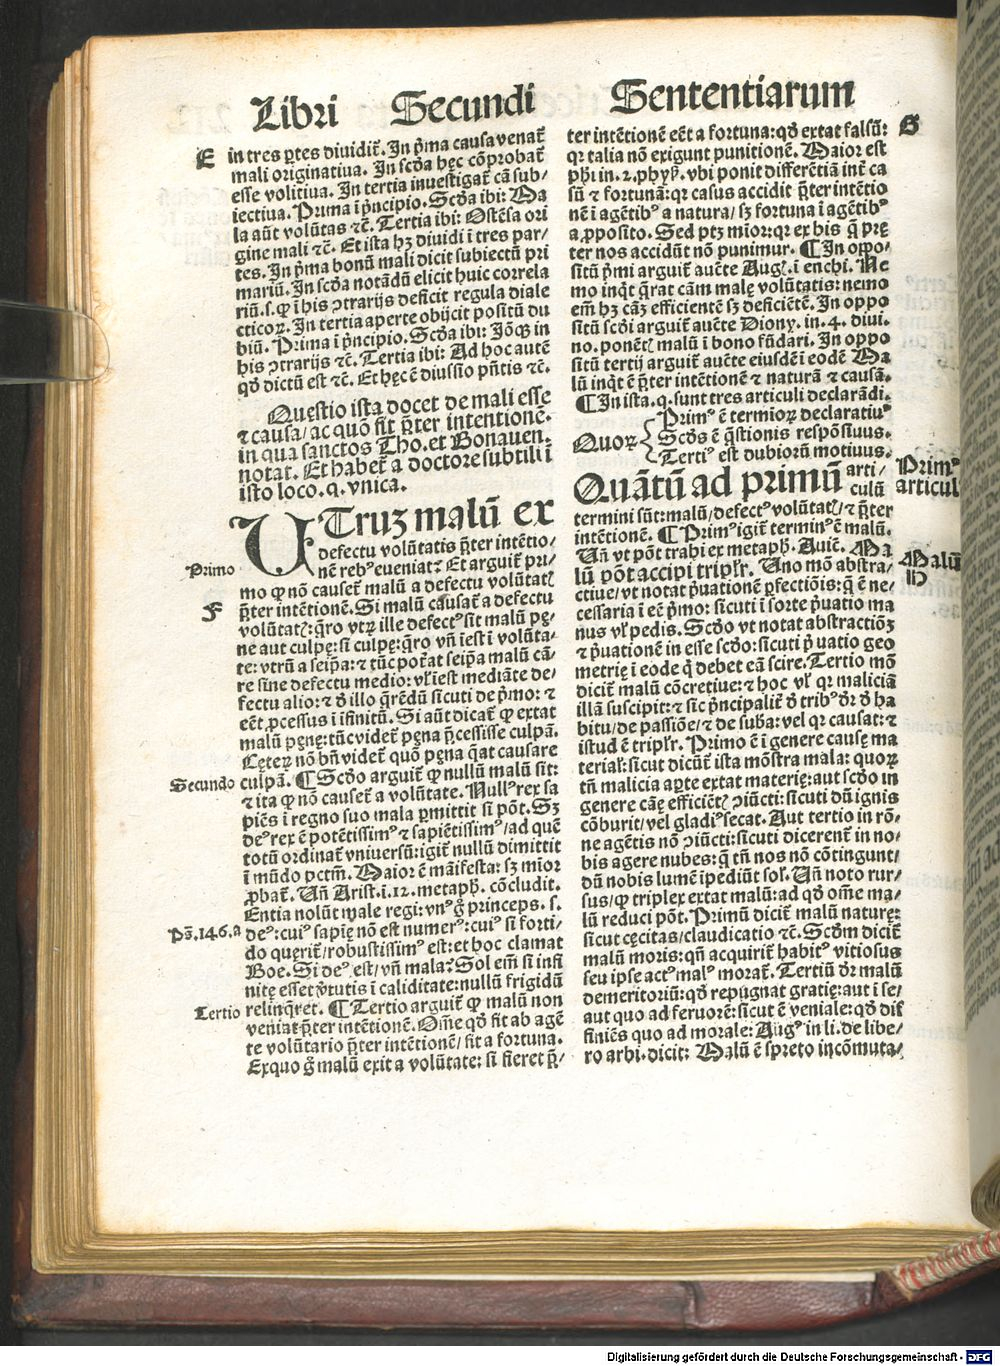 Libri Secundi Sententiarum
E
in tres ꝑtes diuidit̃. In p̃ma causa venat̃
mali originatiua. In scđa hęc cõprobat̃
esse volitiua. In tertia inuestigat̃ cã sub/
iectiua. Prima ĩ pñcipio. Scđa ibi: Ma
la aũt volũtas ⁊c̃. Tertia ibi: Ostẽsa ori
gine mali ⁊c̃. Et ista hꝫ diuidi ĩ tres par/
tes. In p̃ma bonũ mali dicit subiectũ pri
mariũ. In scđa notãdũ elicit huic correla
riũ. s. ꝙ ĩ his ꝯtrarijs deficit regula diale
cticoꝝ. In tertia aperte obijcit positũ du
biũ. Prima ĩ pñcipio. Scđa ibi: Jõqꝫ in
his ꝯtrarijs ⁊c̃. Tertia ibi: Ad hoc autẽ
qđ dictũ est ⁊c̃. Et hęc ẽ diuisio pñtis ⁊c̃.
Quęstio ista docet de mali esse
⁊ causa/ac quõ fit p̃ter intentionẽ.
in qua sanctos Tho. et Bonauen.
notat. Et habet̃ a doctore subtili ĩ
isto loco. q. vnica.
UTruꝫ malũ ex
defectu volũtatis p̃ter intẽtio/
Primo
nẽ rebꝰ eueniat? Et arguit̃ pri/
mo ꝙ nõ causet̃ malũ a defectu volũtatꝭ
F
p̃ter intẽtionẽ. Si malũ causat̃ a defectu
volũtatꝭ: q̃ro vtꝝ ille defectꝰ sit malũ pę/
ne aut culpę: si culpę: q̃ro vñ ĩest ĩ volũta/
te: vtrũ a seip̃a: ⁊ tũc por̃at seip̃a malũ cã/
re sine defectu medio: vł ĩest mediãte de/
fectu alio: ⁊ đ illo q̃rẽdũ sicuti de p̃mo: ⁊
eẽt ꝓcessus ĩ ĩfinitũ. Si aũt dicat̃ ꝙ extat
malũ pęnę: tũc videt̃ pęna p̃cessisse culpã.
Cęteꝝ nõ bñ videt̃ quõ pęna q̃at causare
Secundo
culpã. ¶ Scđo arguit̃ ꝙ nullũ malũ sit:
⁊ ita ꝙ nõ causet̃ a volũtate. Nullꝰ rex sa
piẽs ĩ regno suo mala ꝑmittit si põt. Sꝫ
deꝰ rex ẽ potẽtissimꝰ ⁊ sapiẽtissimꝰ/ad quẽ
totũ ordinat̃ vniuersũ: igit̃ nullũ dimittit
ĩ mũdo pctm̃. Maior ẽ mãifesta: sꝫ mior
ꝓbat̃. Uñ Arist. ĩ. 12. metapħ. cõcludit.
Entia nolũt male regi: vnꝰ g̃ princeps. s.
Ps̃. 146. a
deꝰ: cuiꝰ sapię nõ est numerꝰ: cuiꝰ si forti/
do querit̃/robustissimꝰ est: et hoc clamat
Boe. Si deꝰ est/vñ mala? Sol em̃ si infi
nitę esset ꝟtutis ĩ caliditate: nullũ frigidũ
Tertio
relinq̃ret. ¶ Tertio arguit̃ ꝙ malũ non
veniat p̃ter intẽtionẽ. Om̃e qđ fit ab agẽ
te volũtario p̃ter intẽtionẽ/fit a fortuna.
Exquo g̃ malũ exit a volũtate: si fieret p̃/
ter intẽtionẽ eẽt a fortuna: qđ extat falsũ:
G
qr talia nõ exigunt punitionẽ. Maior est
pħi in. 2. phyꝭ. vbi ponit differẽtiã int̃ ca
sũ ⁊ fortunã: qr casus accidit p̃ter intẽtio
nẽ ĩ agẽtibꝰ a natura/sꝫ fortuna ĩ agẽtibꝰ
a ꝓposito. Sed ptꝫ mior: qr ex his q̃ prę
ter nos accidũt nõ punimur. ¶ In oppo/
sitũ p̃mi arguit̃ aučte Augꝭ. ĩ enchi. Ne
mo inq̃t q̃rat cãm malę volũtatis: nemo
em̃ hꝫ cãꝫ efficientẽ sꝫ deficiẽtẽ. In oppo
sitũ scđi arguit̃ aučte Diony. in. 4. diui.
no. ponẽtꝭ malũ ĩ bono fũdari. In oppo
sitũ tertij arguit̃ aučte eiusdẽ ĩ eodẽ Ma
lũ inq̃t ẽ p̃ter intẽtionẽ ⁊ naturã ⁊ causã.
¶ In ista. q. sunt tres articuli declarãdi.
Primꝰ ẽ termioꝝ declaratiuꝰ
Quoꝝ Scđs ẽ q̃stionis respõsiuus.
Tertiꝰ est dubiorũ motiuus.
Quãtũ ad primũ arti/
culũ
Primꝰ
articul
termini sũt: malũ/defectꝰ volũtatꝭ/⁊ p̃ter
intẽtionẽ. ¶ Primꝰ igit̃ terminꝰ ẽ malũ.
Uñ vt põt trahi ex metapħ. Auič. Ma
Malũ
H
lũ põt accipi triplr̃. Uno mõ abstra/
ctiue/vt notat p̃uationẽ ꝑfectiõis: q̃ ẽ ne/
cessaria ĩ eẽ p̃mo: sicuti ĩ sorte p̃uatio ma
nus vł pedis. Scđo vt notat abstractiõꝫ
⁊ p̃uationẽ in esse scđo: sicuti p̃uatio geo
metrię ĩ eo de q̃ debet eã scire. Tertio mõ
dicit̃ malũ cõcretiue: ⁊ hoc vł qr maliciã
illã suscipit: ⁊ sic p̃ncipalit̃ đ tribꝰ đr đ ha
bitu/de passiõe/⁊ de suba: vel qr causat: ⁊
istud ẽ triplr̃. Primo ẽ ĩ genere causę ma
terial: sicut dicũt̃ ista mõstra mala: quoꝝ
tñ malicia aꝑte extat materię: aut scđo in
genere cãę efficiẽtꝭ ꝯiũcti: sicuti dũ ignis
cõburit/vel gladiꝰ secat. Aut tertio in rõ/
ne agẽtis nõ ꝯiũcti: sicuti dicerent̃ in no/
bis agere nubes: q̃ tñ nos nõ cõtingunt/
dũ nobis lumẽ ĩpediũt sol. Uñ noto rur/
sus/ꝙ triplex extat malũ: ad qđ om̃e ma/
lũ reduci põt. Primũ dicit̃ malũ naturę:
sicut cęcitas/claudicatio ⁊c̃. Scđm dicit̃
malũ moris: qñ acquirit̃ habitꝰ vitiosus
seu ipse actꝰ malꝰ morat̃. Tertiũ đr malũ
demeritoriũ: qđ repugnat gratię: aut ĩ se/
aut quo ad feruorẽ: sicut ẽ veniale: qđ dif
finiẽs quo ad morale: Augꝰ in li. de libe/
ro arbi. dicit: Malũ ẽ spreto incõmuta/
Digitalisierung gefördert durch die Deutsche Forschungsgemeinschaft - DFG